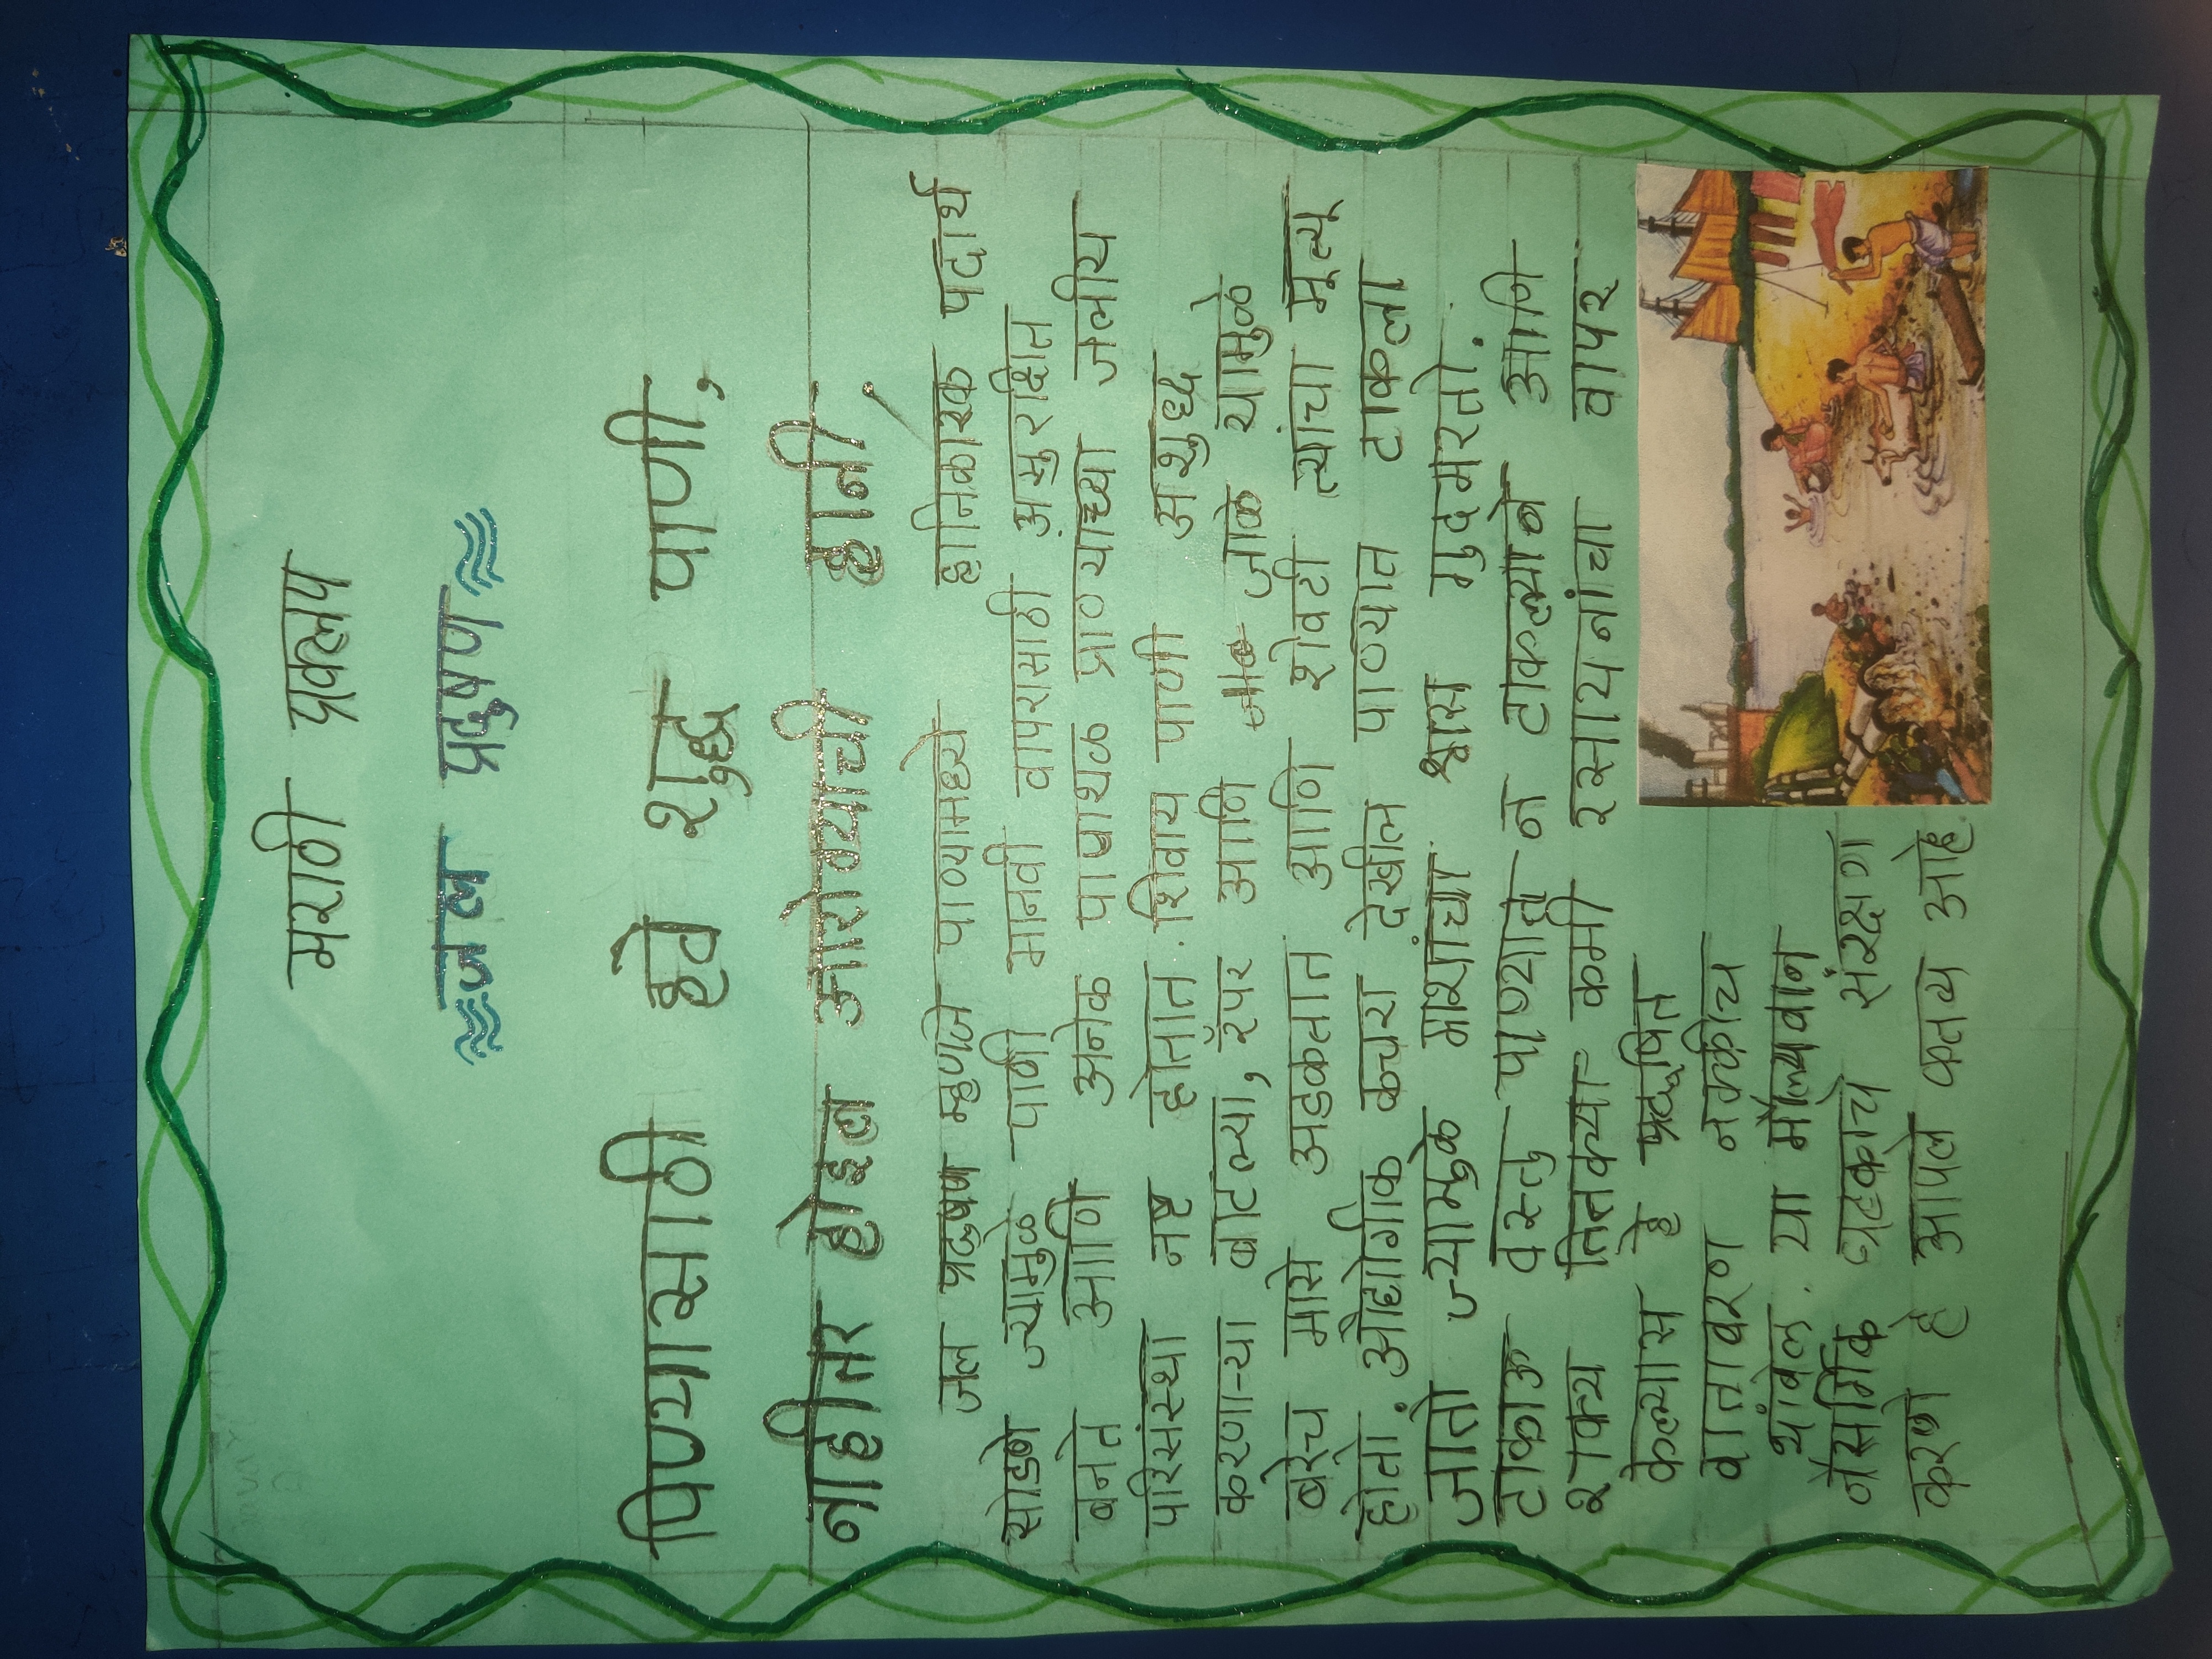 मराठी प्रकल्प
जल प्रदुषण
पिण्यासाठी हवे शुद्ध पाणी,
नाहीतर होइल आरोग्याची हानी.
जल प्रदुषण म्हणजे पाण्यामध्ये हानिकारक पदार्थ
सोडणे ज्यामुळे पाणी मानवी वापरासाठी असुरक्षित
बनते आणि अनेक पाणथळ प्राण्यांच्या जलीय
परिसंस्था नष्ट होतात. शिवाय पाणी अशुध्द
करणाऱ्या बाटल्या, रॅपर आणि जाळे यामुळे
बरेच मासे अडकतात आणि शेवटी त्यांचा मृत्यू
होतो. औद्योगीक कचरा देखील पाण्यात टाकला
जातो ज्यामुळे माशांचा श्वास गुदमरतो.
टाकाऊ वस्तु पाण्यात न टाकल्याने आणि
शक्य तितक्या कमी रसायनांचा वापर
केल्यास हे प्रदूषित
वातावरण नक्कीच
थांबेल. या मौल्यवान
नैसर्गिक घटकाचे संरक्षण
करणे हे आपले कतव्य आहे.